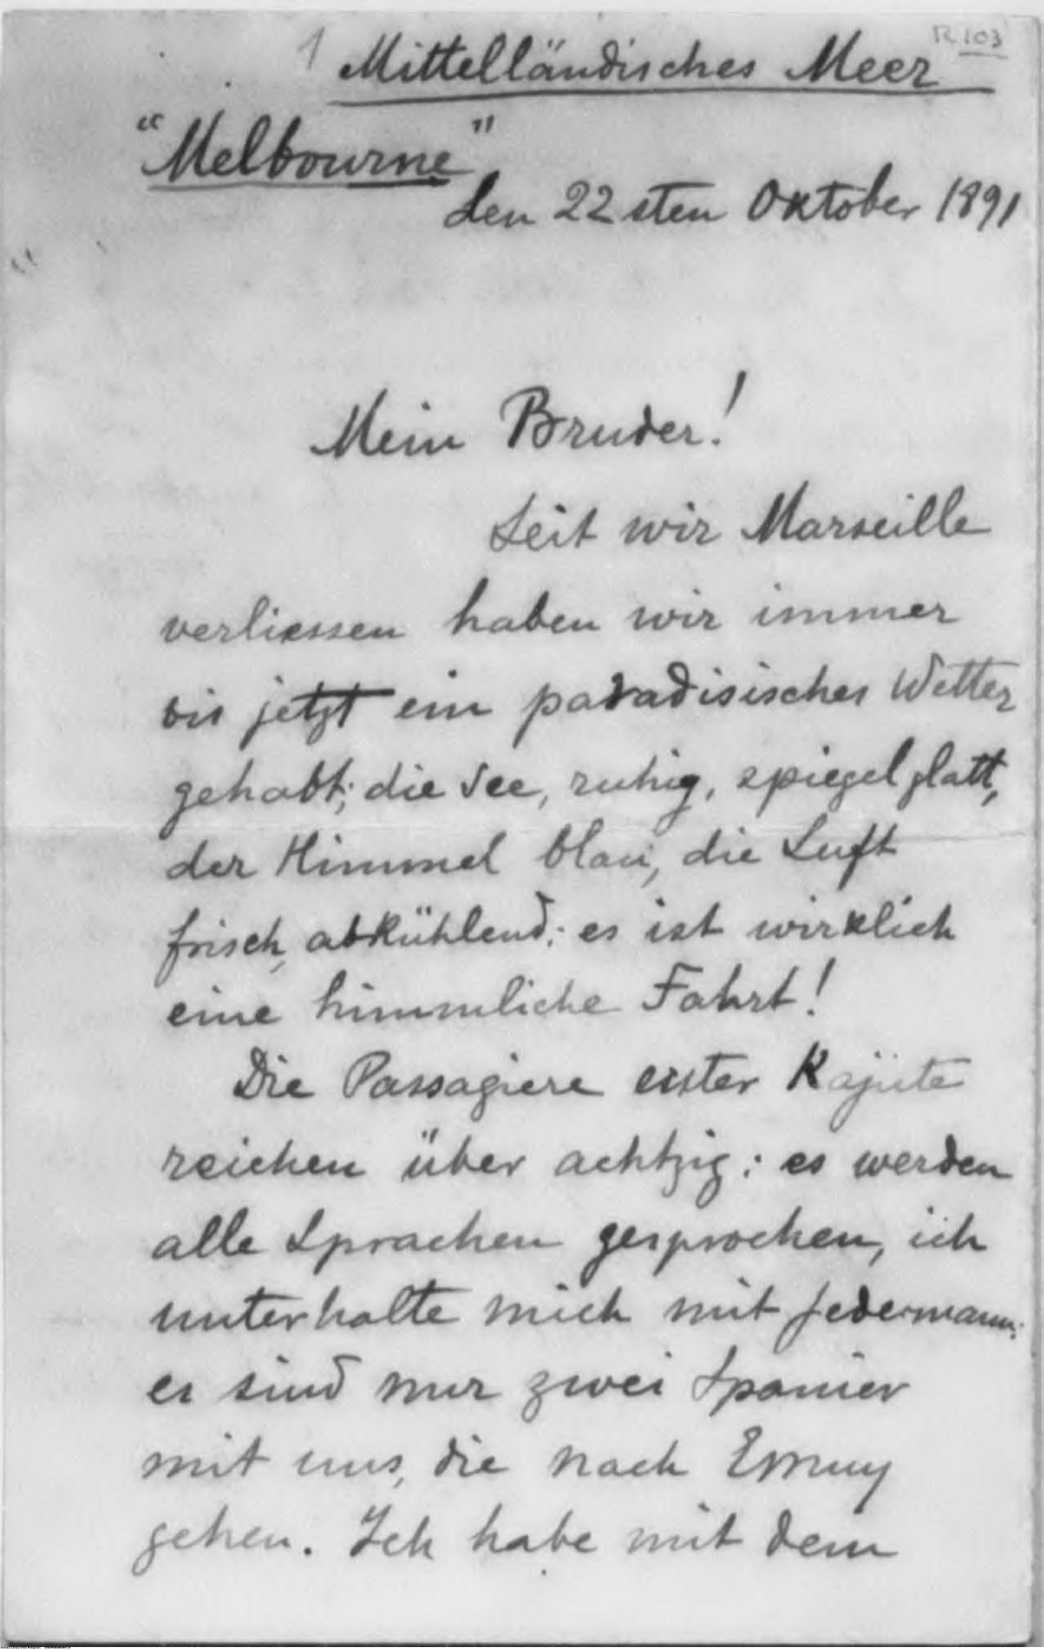 R 103
1 Mittelländisches Meer
"Melbourne"
den 22sten Oktober 1891
Mein Bruder!
Seit wir Marseille
verliessen haben wir immer
bis jetzt ein paradisisches Wetter
gehabt; die See, ruhig, spiegelglatt,
der Himmel blau, die Luft
frisch, abkühlend; es ist wirklich
eine himmliche Fahrt!
Die Passagiere erster Kajüte
reichen über achtzig: es werden
alle Sprachen gesprochen, ich
unterhalte mich mit Jedermann;
es sind nur zwei Spanier
mit uns, die nach Emuy
gehen. Ich habe mit dem